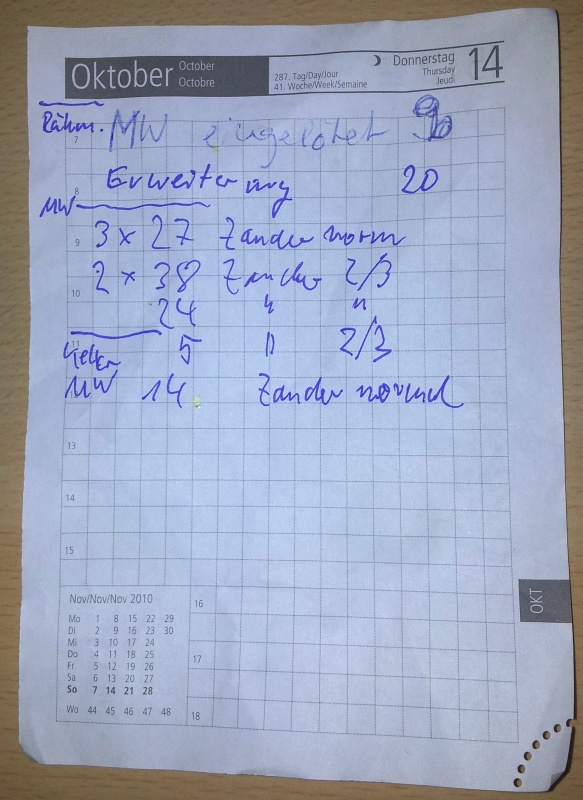 Oktober October Octobre
287. Tag/Day/Jour
41. Woche/Week/Semaine
Donnerstag Thursday Jeudi 14
Rähm. MW eingelötet
7
8 Erweiterung 20
MW
9 3 x 27 Zander norm
2 x 38 Zander 2/3
10
24 " "
11 5 " 2/3
Keller
MW 14 Zander normal
13
14
15
Nov/Nov/Nov 2010
Mo 1 8 15 22 29
Di 2 9 16 23 30
Mi 3 10 17 24
Do 4 11 18 25
Fr 5 12 19 26
Sa 6 13 20 27
So 7 14 21 28
Wo 44 45 46 47 48
16
17
18
OKT